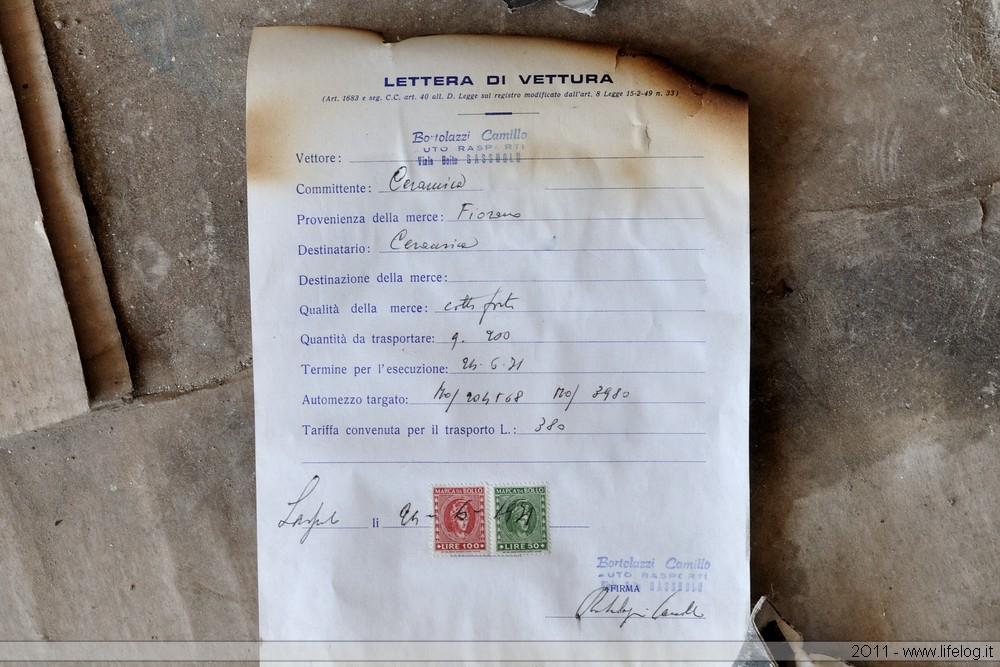 LETTERA DI VETTURA
(Art. 1683 e seg. C.C. art. 40 all. D. Legge sul registro modificato dall'art. 8 Legge 15-2-49 n. 33)
Bortolazzi Camillo
UTO RASPRTI
Viale Boito SASSUOLO
Vettore:
Committente: Ceramica
Provenienza della merce: Fiorano
Destinatario: Ceramica
Destinazione della merce:
Qualità della merce: cotto forte
Quantità da trasportare: q. 200
Termine per l'esecuzione: 24.6.71
Automezzo targato: MO/204568 MO/3980
Tariffa convenuta per il trasporto L.: 380
MARCA DA BOLLO MARCA DA BOLLO
li 24-6-1971
LIRE 100 LIRE 50
Bortolazzi Camillo
UTO RASPERTI
SASSUOLO
FIRMA
Bortolazzi Camillo
2011 - www.lifelog.it